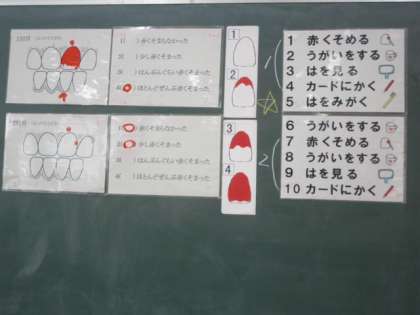 1回目
1( )赤くそまらなかった
2( )少し赤くそまった
3( )はんぶんぐらい赤くそまった
4( )ほとんどぜんぶ赤くそまった
1
2
1
1 赤くそめる
2 うがいをする
3 はを見る
4 カードにかく
5 はをみがく
2回目
1( )赤くそまらなかった
2( )少し赤くそまった
3( )はんぶんぐらい赤くそまった
4( )ほとんどぜんぶ赤くそまった
3
4
2
6 うがいをする
7 赤くそめる
8 うがいをする
9 はを見る
10 カードにかく